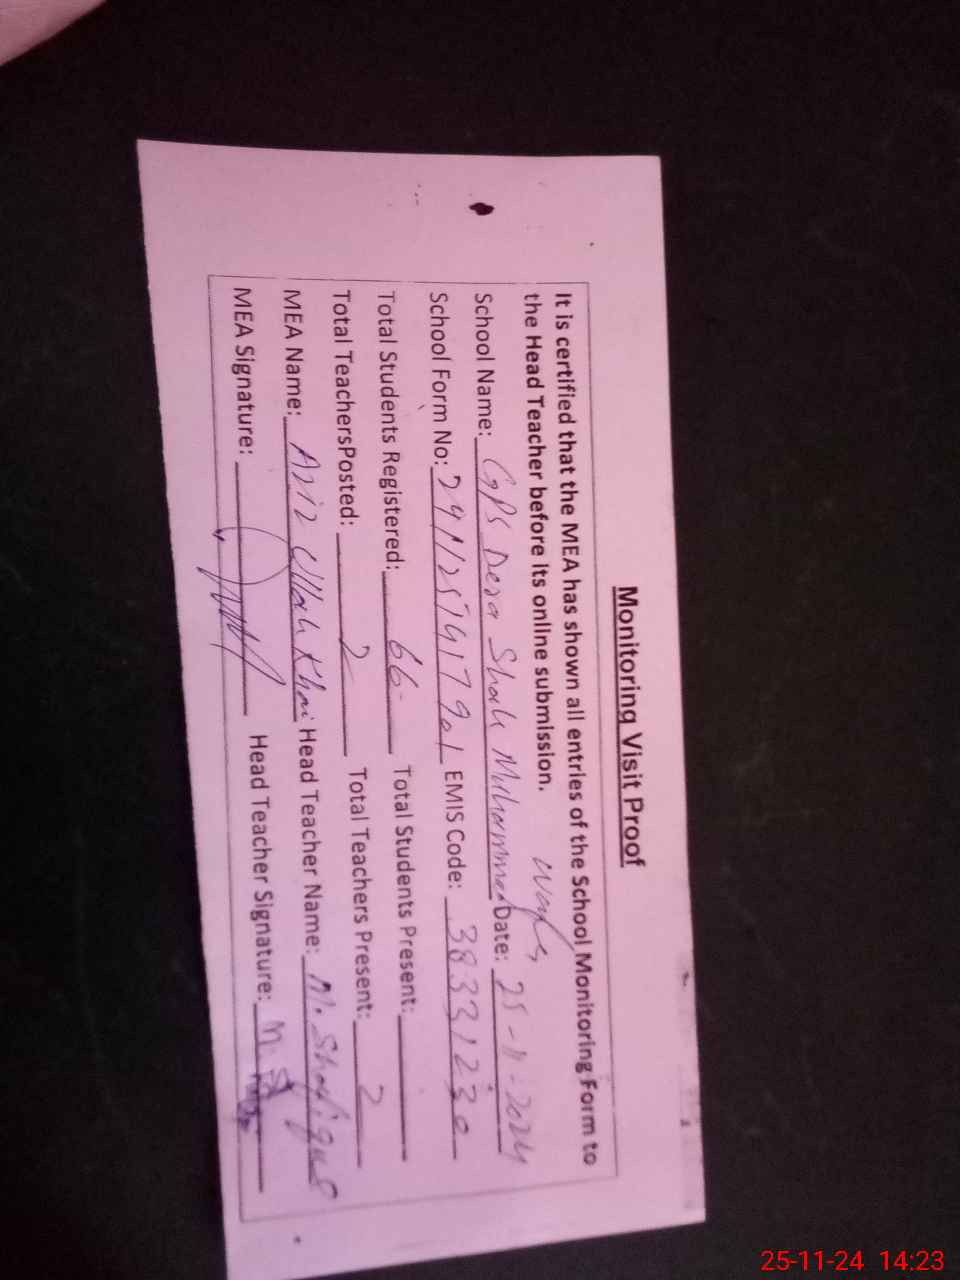 Monitoring Visit Proof
It is certified that the MEA has shown all entries of the School Monitoring Form to
the Head Teacher before its online submission.
School Name: GPS Dera Shah Muhammad Date: 25-11-2024
School Form No: EMIS Code: 38331230
Total Students Registered: 66 Total Students Present:
Total TeachersPosted: 2 Total Teachers Present: 2
MEA Name: Aziz Ullah Khan Head Teacher Name: M. Shafique
MEA Signature: Head Teacher Signature:
25-11-24 14:23